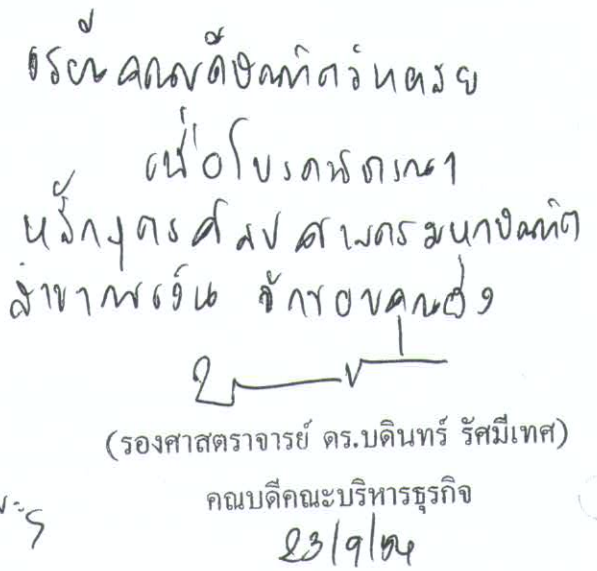 เรียน คณบดีบัณฑิตวิทยาลัย
เพื่อโปรดพิจารณา
หลักสูตรศิลปศาสตรมหาบัณฑิต
สาขาการเงิน จักขอบคุณยิ่ง
(รองศาสตราจารย์ ดร.บดินทร์ รัศมีเทศ)
คณบดีคณะบริหารธุรกิจ
23/9/54